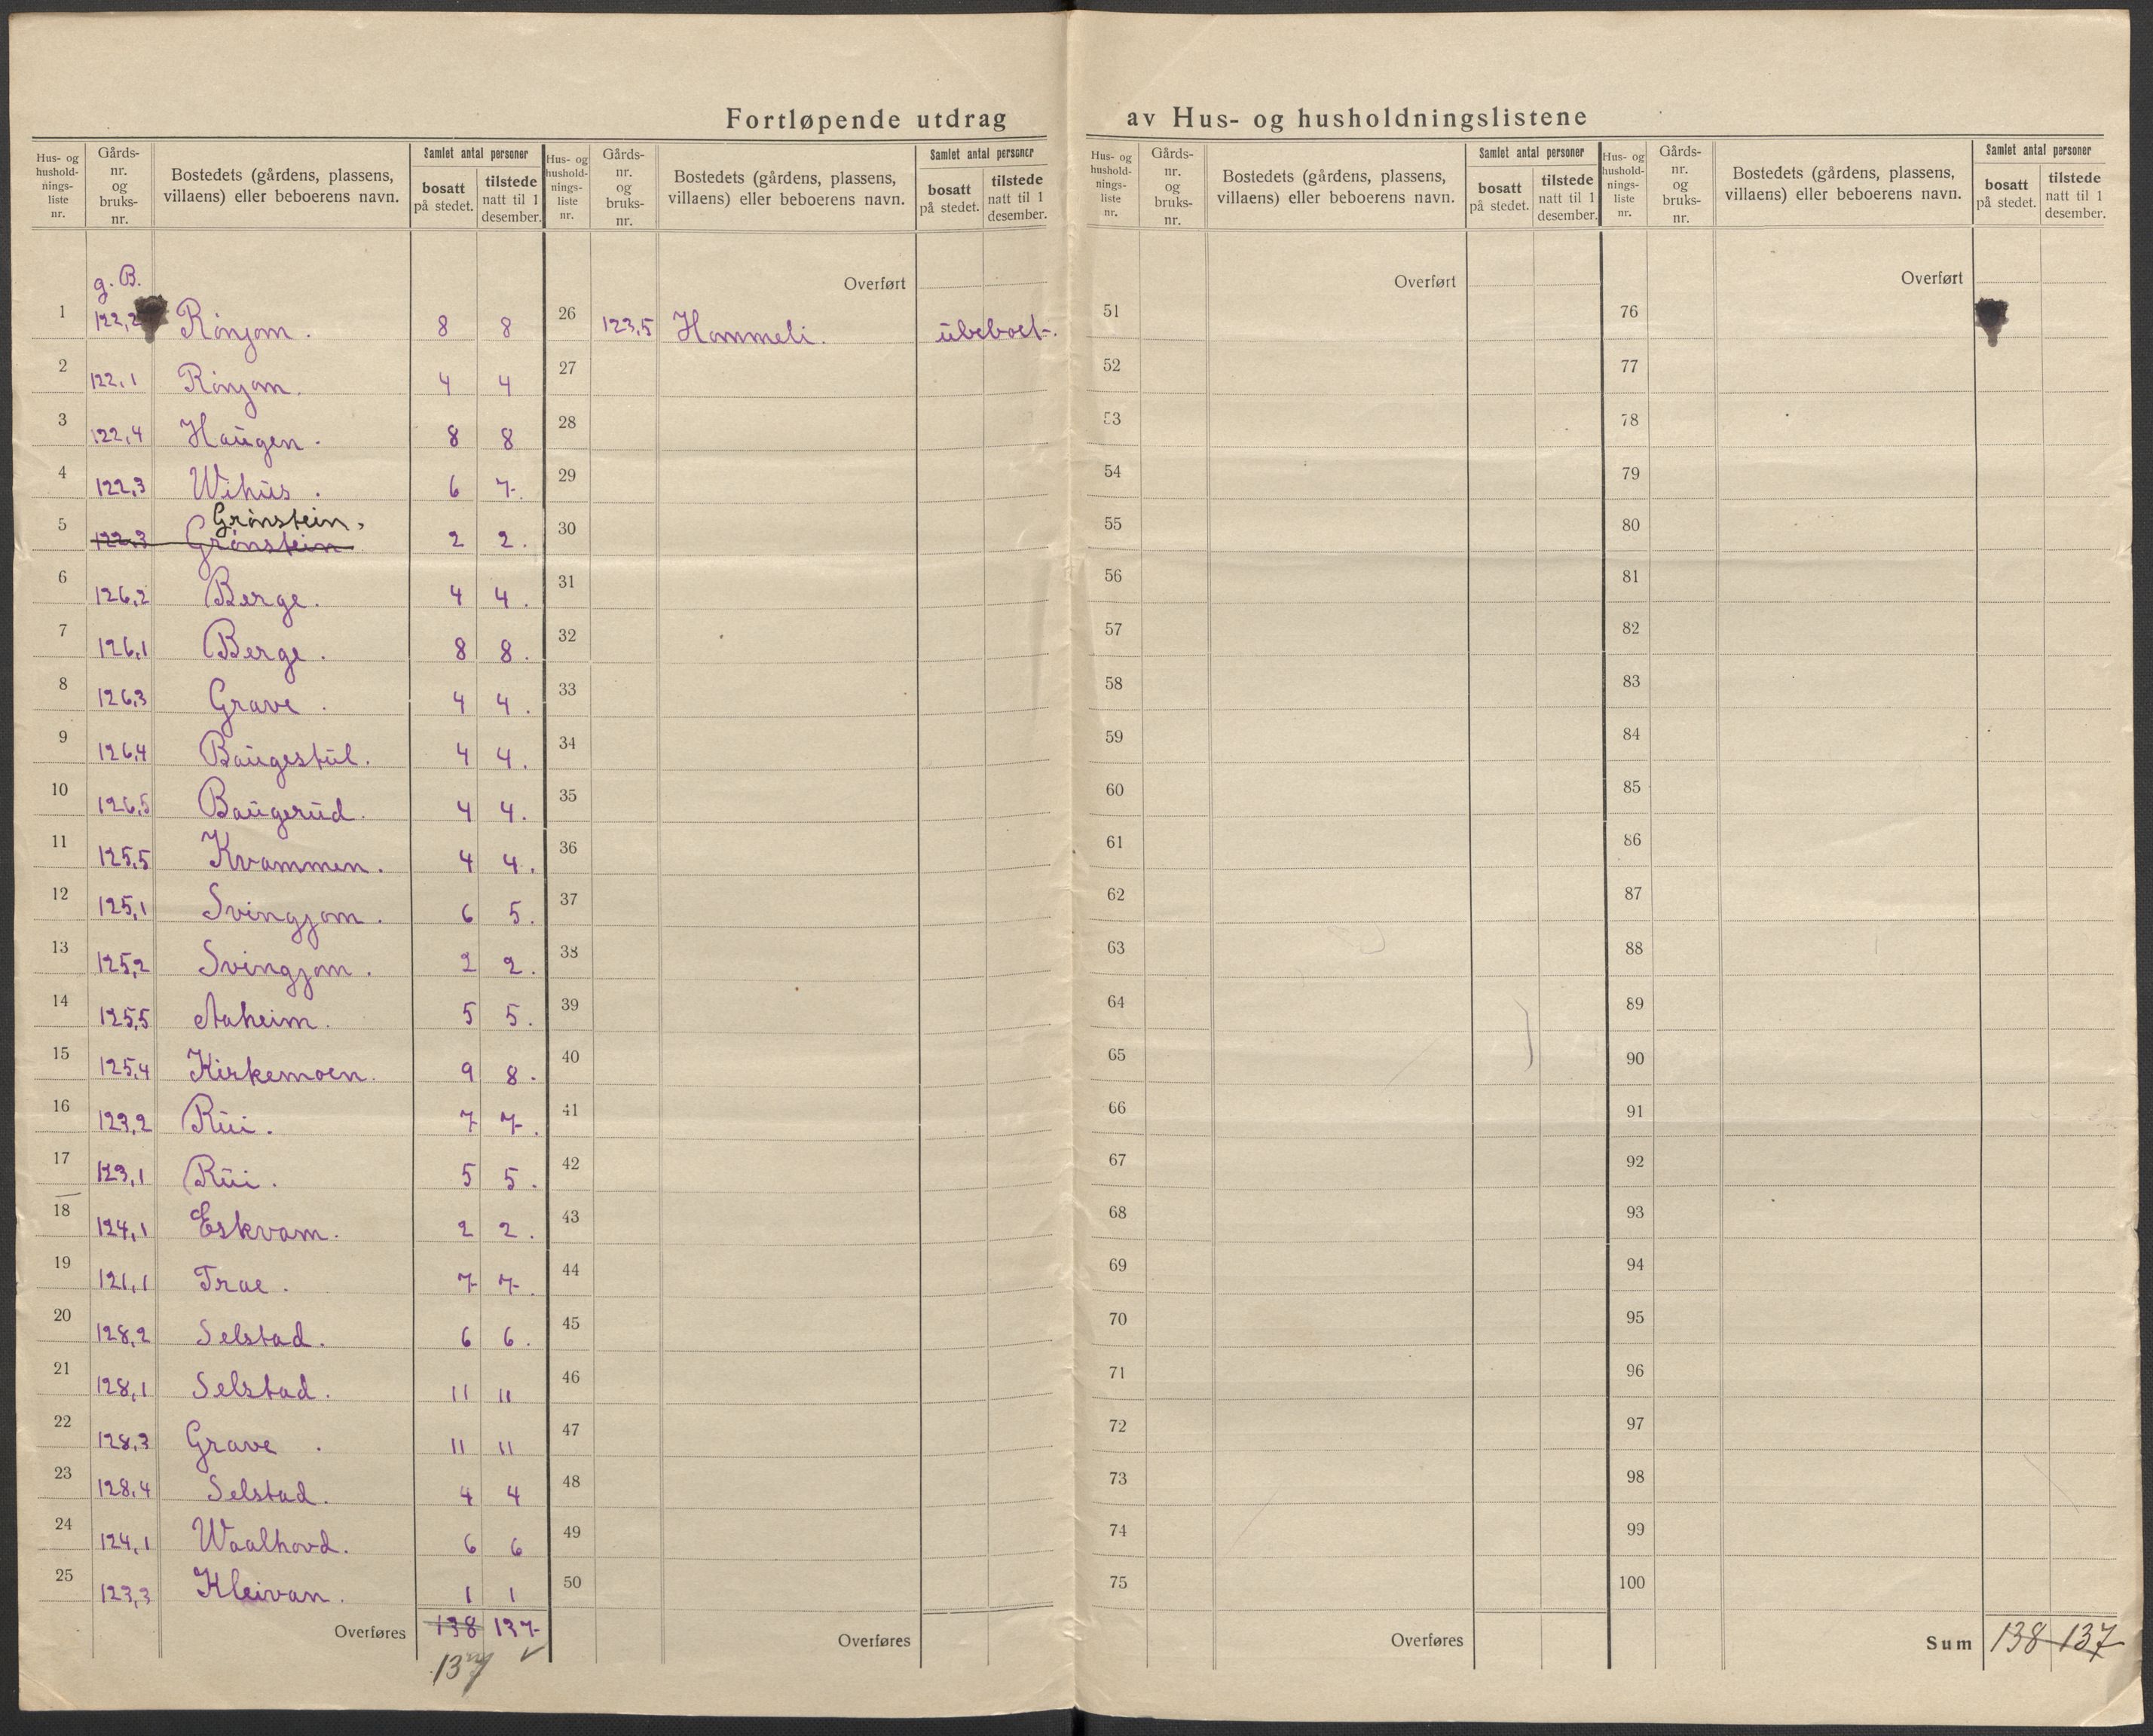 Fortløpende utdrag av Hus- og husholdningslistene
Hus- og hushold-nings-liste nr. Gårds-nr. og bruks-nr. Bostedets (gårdens, plassens, villaens) eller beboerens navn. Samlet antal personer bosatt på stedet. tilstede natt til 1 desember.
g. B.
1 122,2 Rönjom. 8 8
2 122,1 Rönjom. 4 4
3 122,4 Haugen. 8 8
4 122,3 Wihus. 6 7.
Grönstein.
5 122,3 Grönstein 2 2.
6 126,2 Berge. 4 4.
7 126,1 Berge. 8 8.
8 126,3 Grave. 4 4.
9 126,4 Baugestul. 4 4.
10 126,5 Baugerud. 4 4.
11 125,5 Kvammen. 4 4.
12 125,1 Svingjom. 6 5.
13 125,2 Svingjom. 2 2.
14 125,5 Aaheim. 5 5.
15 125,4 Kirkemoen. 9 8.
16 123,2 Rui. 7 7.
17 123,1 Rui. 5 5.
18 124,1 Eskvam. 2 2.
19 121,1 Trae. 7 7.
20 128,2 Selstad. 6 6.
21 128,1 Selstad. 11 11
22 128,3 Grave. 11 11
23 128,4 Selstad. 4 4
24 124,1 Waalhovd. 6 6
25 123,3 Kleivan. 1 1
Overføres 138 137
137
Hus- og hushold-nings-liste nr. Gårds-nr. og bruks-nr. Bostedets (gårdens, plassens, villaens) eller beboerens navn. Samlet antal personer bosatt på stedet. tilstede natt til 1 desember.
Overført
26 123,5 Hommeli. ubeboet.
27
28
29
30
31
32
33
34
35
36
37
38
39
40
41
42
43
44
45
46
47
48
49
50
Overføres
Hus- og hushold-nings-liste nr. Gårds-nr. og bruks-nr. Bostedets (gårdens, plassens, villaens) eller beboerens navn. Samlet antal personer bosatt på stedet. tilstede natt til 1 desember.
Overført
51
52
53
54
55
56
57
58
59
60
61
62
63
64
65
66
67
68
69
70
71
72
73
74
75
Overføres
Hus- og hushold-nings-liste nr. Gårds-nr. og bruks-nr. Bostedets (gårdens, plassens, villaens) eller beboerens navn. Samlet antal personer bosatt på stedet. tilstede natt til 1 desember.
Overført
76
77
78
79
80
81
82
83
84
85
86
87
88
89
90
91
92
93
94
95
96
97
98
99
100
Sum 138 137